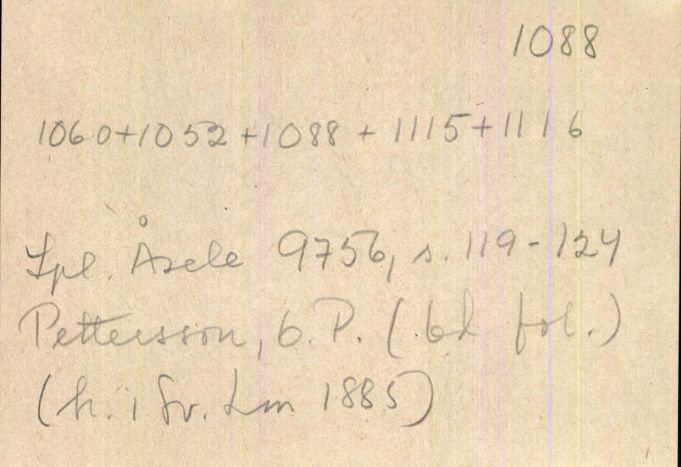 1088
1060+1052+1088+1115+1116
Lpl. Åsele 9756, s. 119-124
Pettersson, O. P. (bd fol.)
(h. i Sv. Lm 1885)